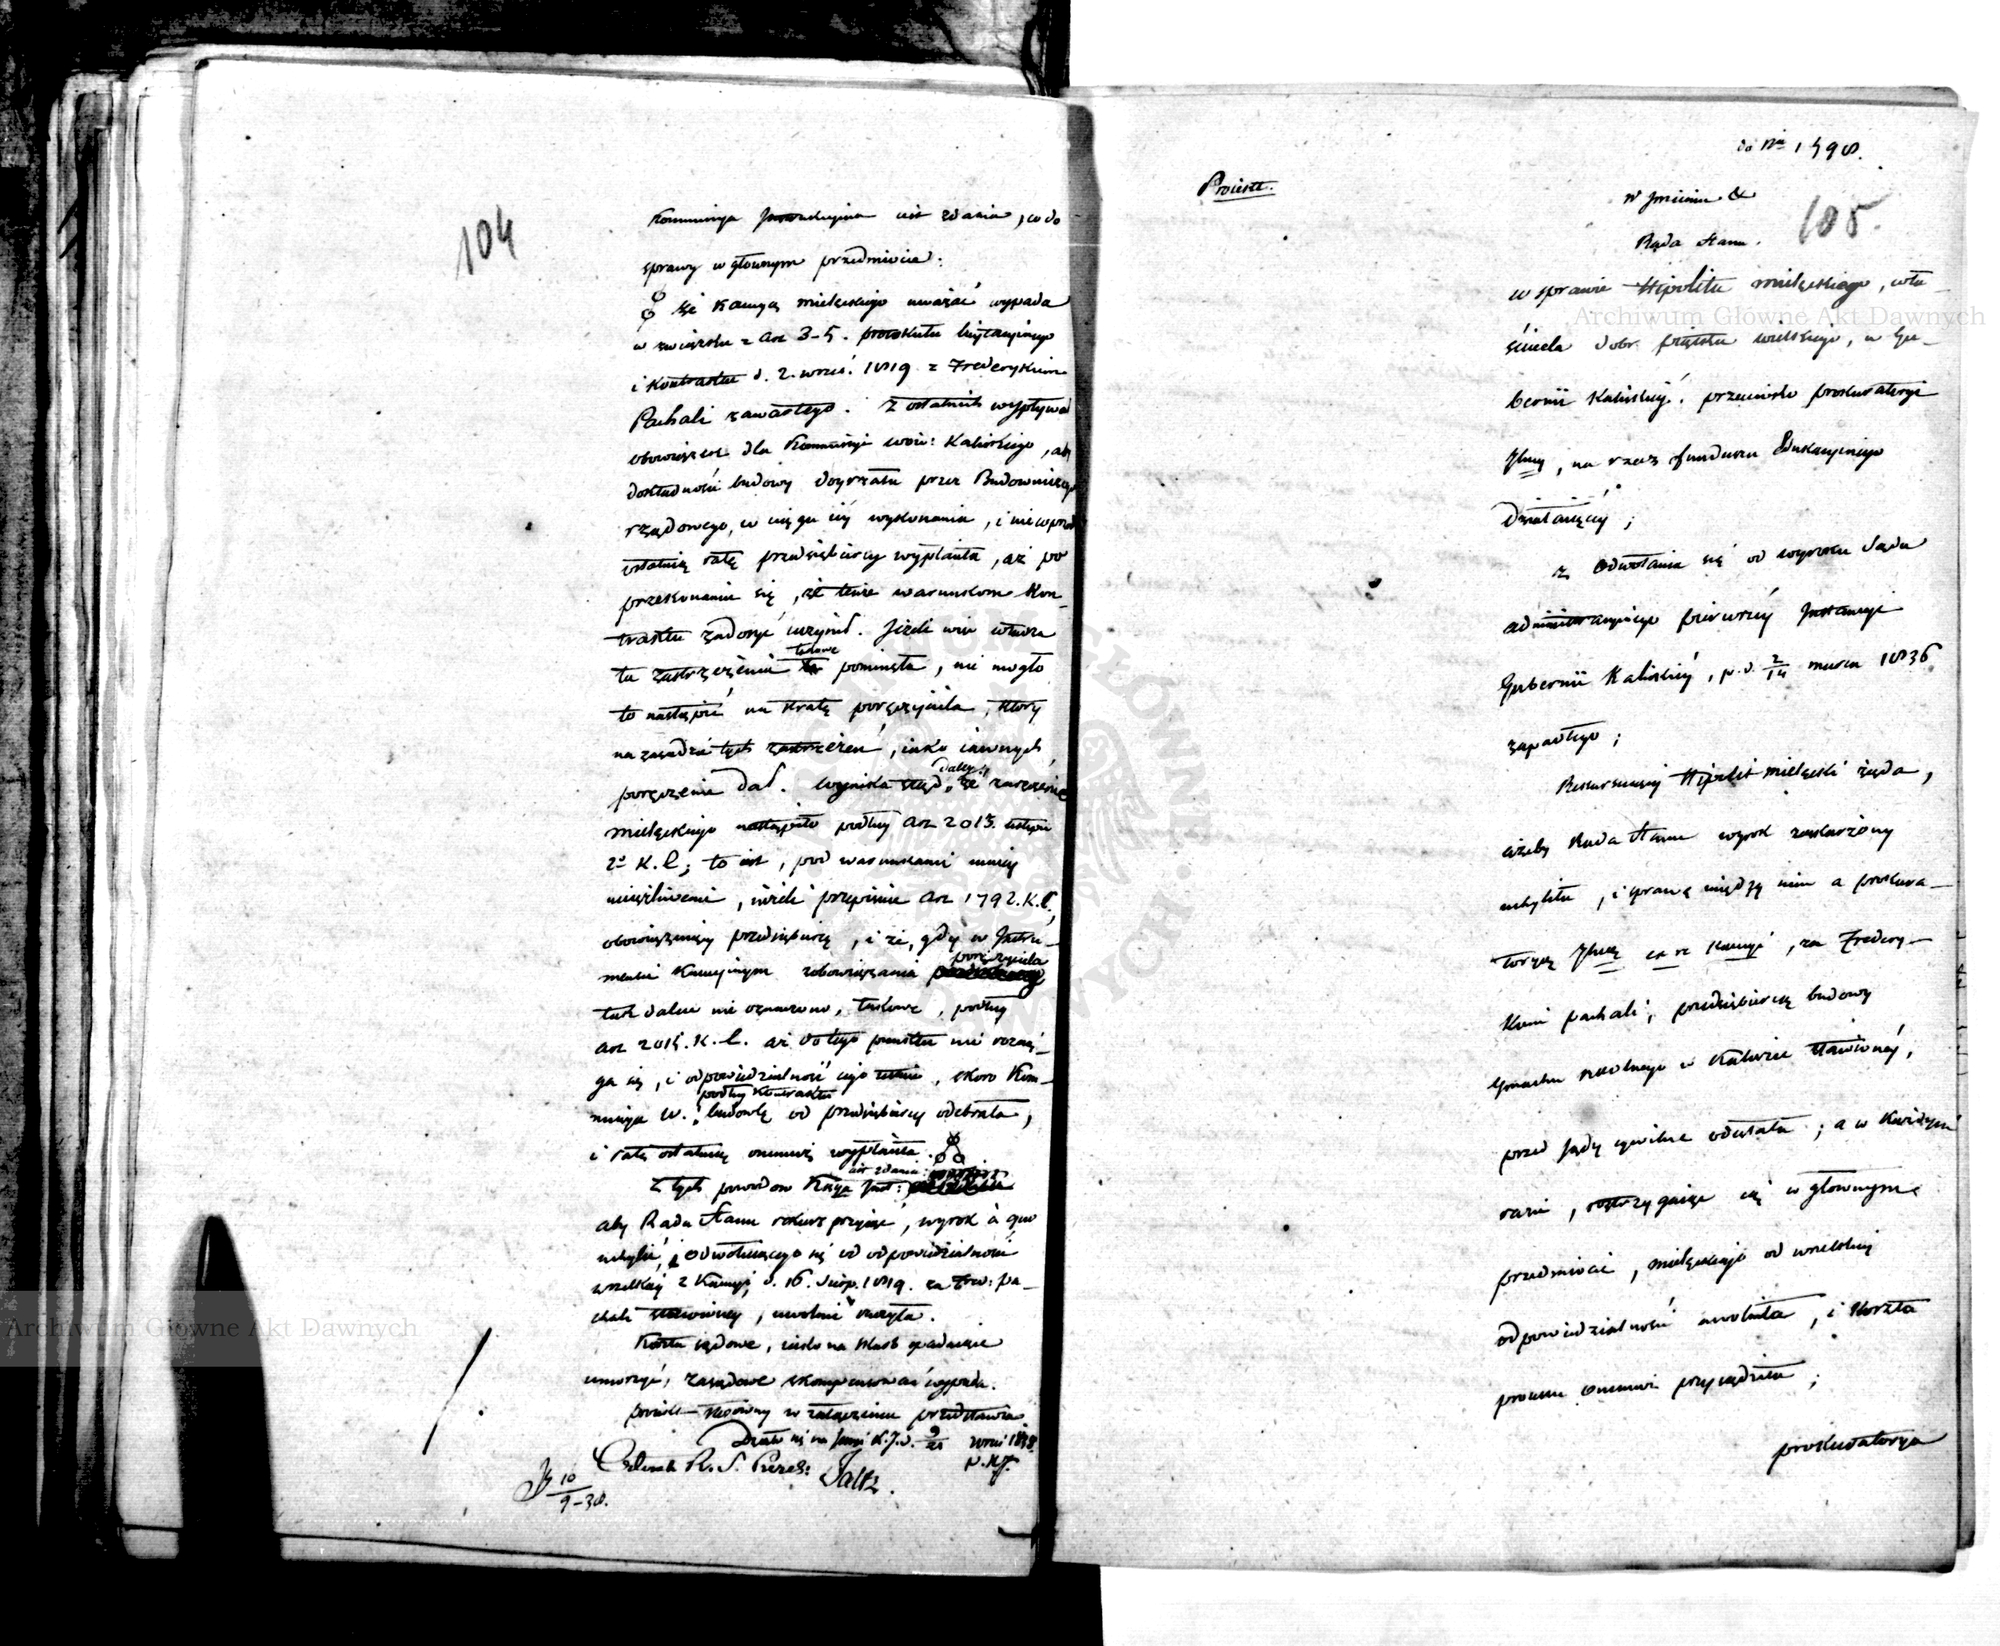 104
Kommissya Instrukcyjna jest zdania, co do
sprawy w głownym przedmiocie:
że Kaucyą Mielęckiego uważać wypada
w związku z Art 3-5. protokułu licytacyinego
i Kontraktu d. 2. wrześ: 1819 z Fryderykiem
Pachali zawartego. Z ostatnich wypływał
obowiązek dla Kommissyi woie: Kaliskiego, aby
dokładność budowy doyrzała przez Budowniczego
rządowego, w ciągu iéy wykonania, i nie wprzód
ostatnią ratę przedsiębiercy wypłaciła, aż po
przekonaniu się, że tenże warunkom Kon-
traktu zadosyć uczynił. Jeżeli więc władza
ta zastrzeżenia takowe pominęła, nie mogło
to nastąpić na stratę poręczyciela, który
na zasadzie tych zastrzeżeń, iako iawnych,
poręczenie dał. Wynika ztąd daléy, że zaręczenie
Mielęckiego nastąpiło podług Art 2013. ustępu
2º K. C; to iest, pod warunkami mniéy
uciążliwemi, iżeli przepisuie Art 1792. K. C.,
obowiązuiący przedsiębiercę, i że, gdy w Instru-
mencie Kaucyinym zobowiązania poręczyciela
tak dalece nie oznaczono, takowe, podług
Art 2015. K. C. aż do tego punktu nie rozcią-
ga się, i odpowiedzialność iego ustaie, skoro Kom-
missya W. podług Kontraktu budowlę od przedsiębiercy odebrała,
i ratę ostatnią onemuż wypłaciła.
Z tych powodow Kssya Inst: iest zdania:
aby Rada Stanu rekurs przyjąć, wyrok à quo
uchylić, i odwołuiącego się od odpowiedzialności
wszelkiéy z Kaucyi d. 16. Sierp. 1819. za Fred: Pa-
chali stawionéy, uwolnić raczyła.
Koszta sądowe, iako na Skarb spadaiące
umorzyć, zasądowe skompensować wypada.
Projekt stosowny w załączeniu przedstawia.
Działo się na sessyi K. J. d. 9/21 wrześ 1838.
R. S. Prezes:
10/9-38.
do Nru 1598.
Projekt.
W Jmieniu &
105.
Rada Stanu.
w sprawie Hipolita Mielęckiego, wła-
ściciela dobr Piątku wielkiego, w Gu-
bernii Kaliskiéy, przeciwko prokuratoryi
Jlney, na rzecz funduszu Edukacyinego
działaiącéy;
z odwołania się od wyroku Sądu
administracyinego pierwszéy Instancyi
Gubernii Kaliskiéy, p. d. 2/14 marca 1836
zapadłego;
Rekuruiący Hipolit Mielęcki żąda,
ażeby Rada Stanu wyrok zaskarżony
uchyliła, i sprawę między nim a prokura-
toryą Jlną ex re Kaucyi, za Frydery-
kiem Pachali, przedsiębiercą budowy
Gmachu szkolnego w Kaliszu stawionéy,
przed sądy cywilne odesłała; a w każdym
razie, rozstrzygaiąc się w głownym
przedmiocie, Mielęckiego od wszelkiéy
odpowiedzialności uwolniła, i Koszta
procesu onemuż przysądziła;
prokuratorya
Archiwum Główne Akt Dawnych
Archiwum Główne Akt Dawnych